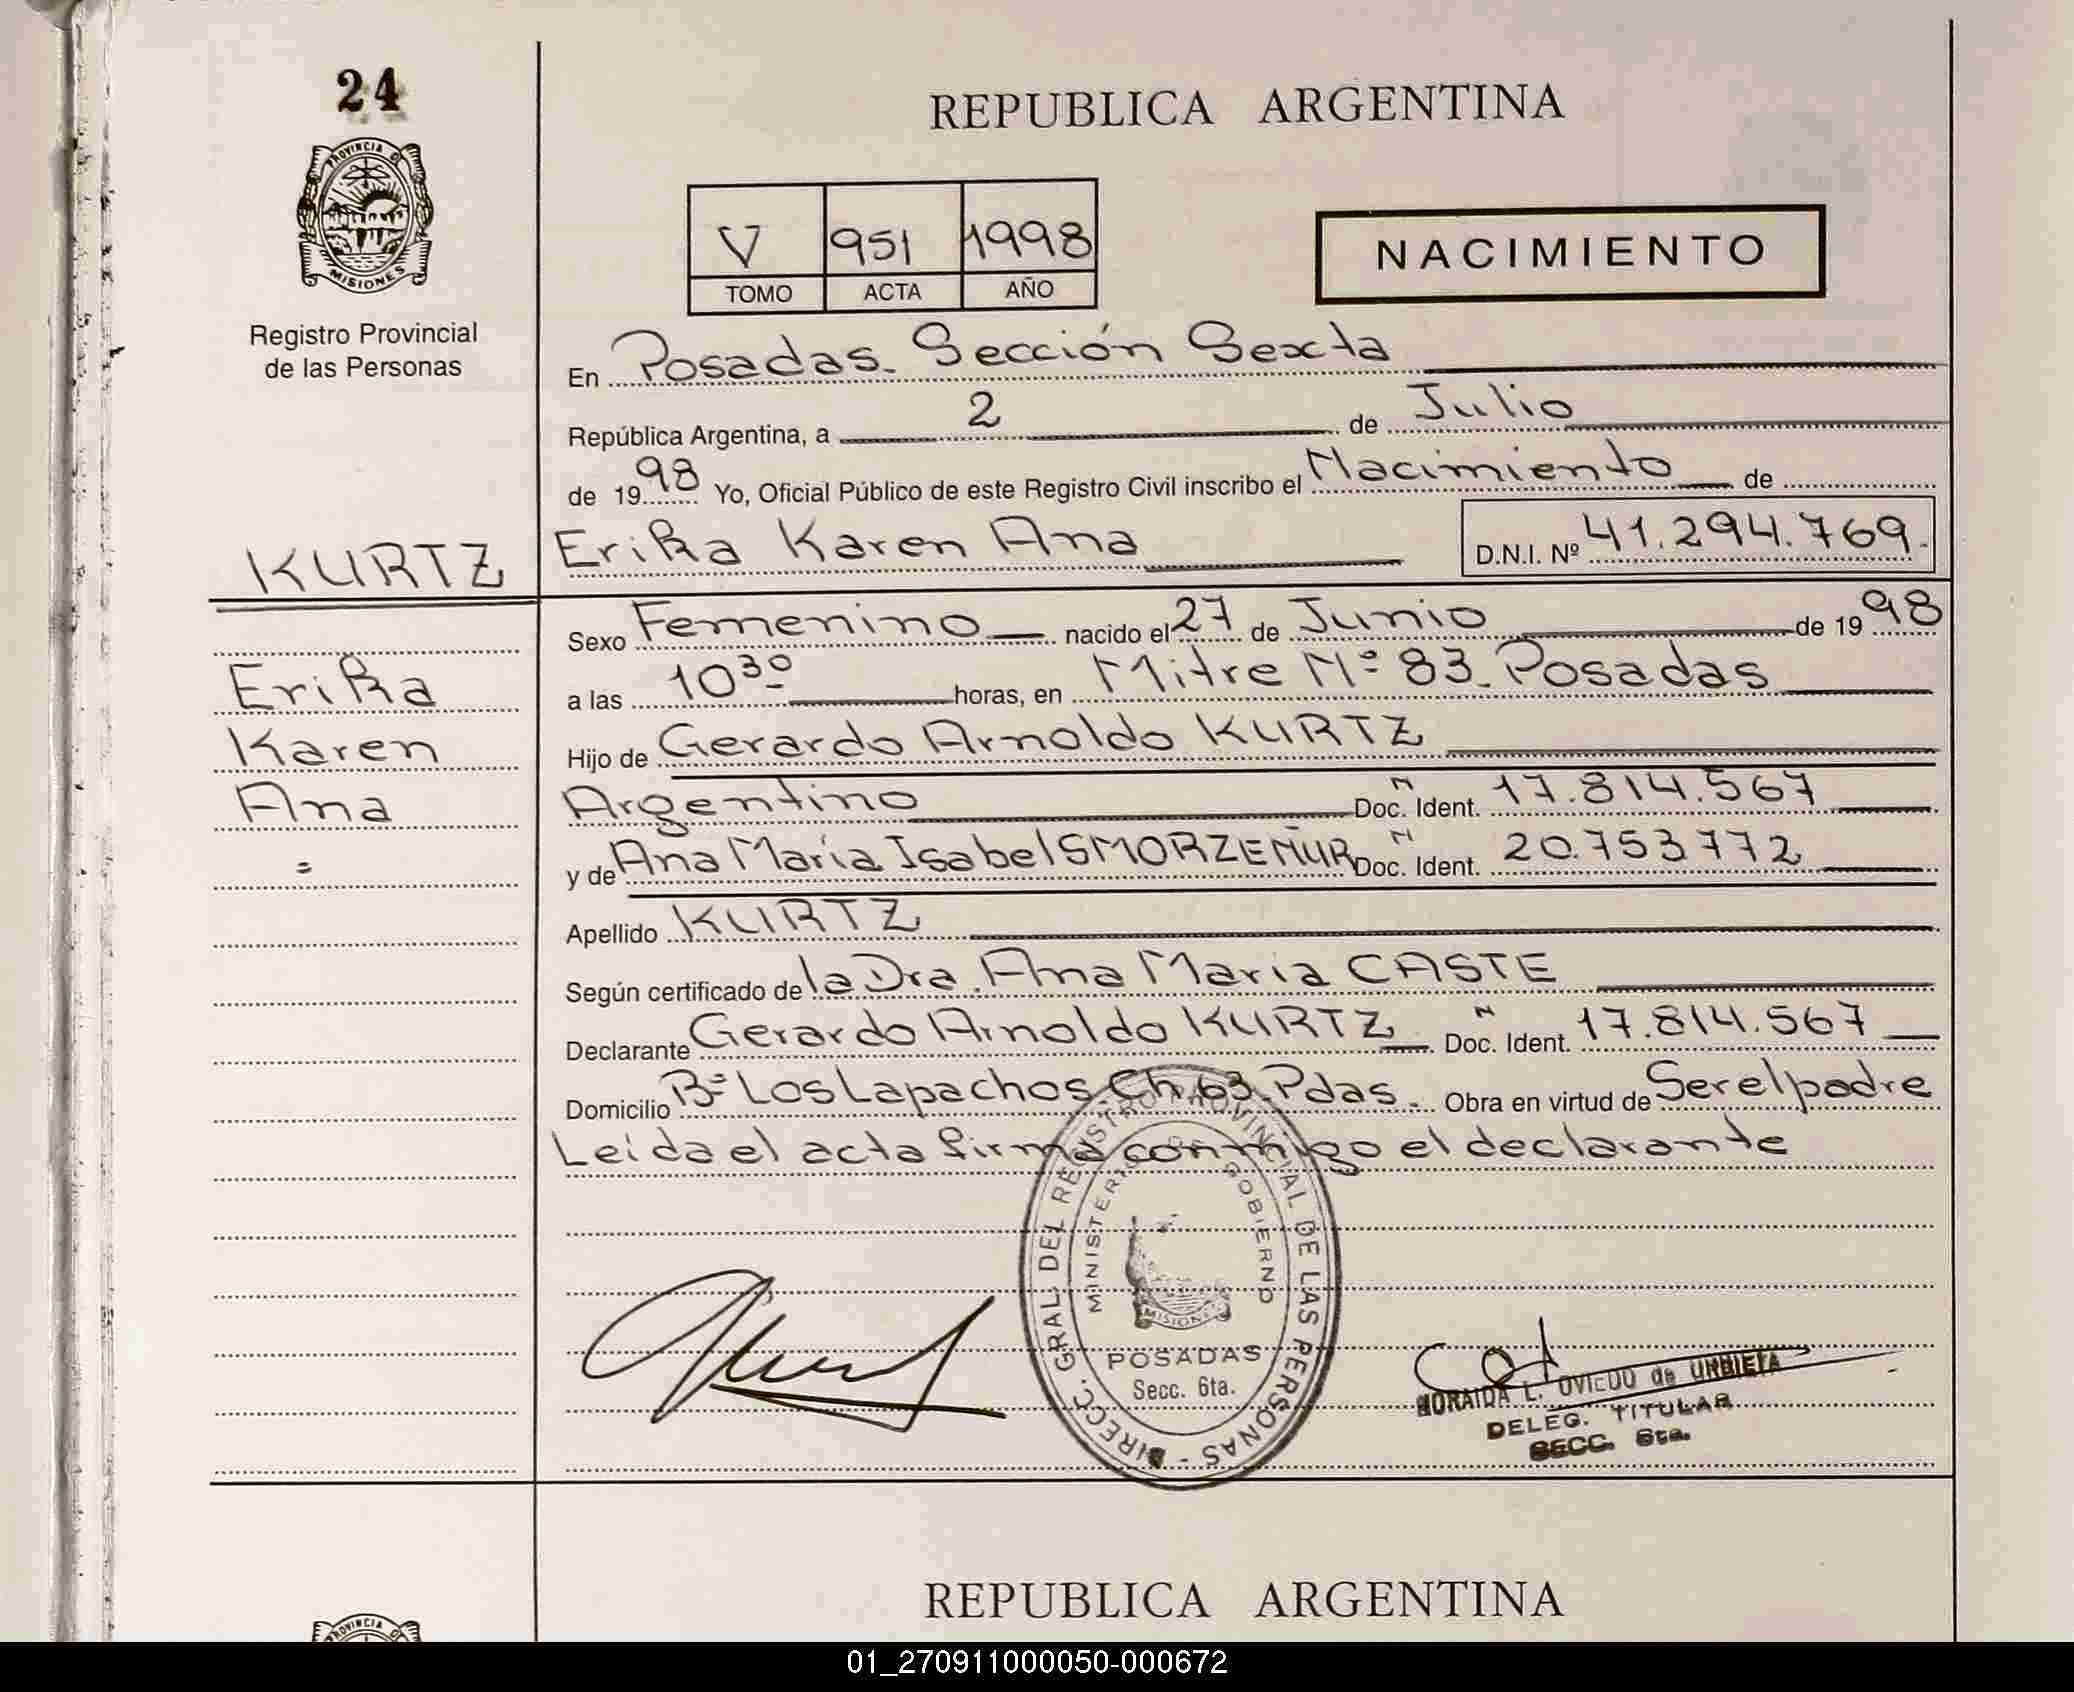 24
PROVINCIA D
MISIONES
Registro Provincial
de las Personas
REPUBLICA ARGENTINA
V 951 1998
TOMO ACTA AÑO
NACIMIENTO
En Posadas. Sección Sexta
República Argentina, a 2 de Julio
de 1998 Yo, Oficial Público de este Registro Civil inscribo el Nacimiento de
KURTZ Erika Karen Ana D.N.I. Nº 41.294.769.
Sexo Femenino nacido el 27 de Junio de 1998
a las 10³⁰ horas, en Mitre Nº 83. Posadas
Hijo de Gerardo Arnoldo KURTZ
Argentino Doc. Ident. N 17.814.567
y de Ana María Isabel SMORZEÑUR Doc. Ident. N 20.753.772
Apellido KURTZ
Según certificado de la Dra. Ana Maria CASTE
Declarante Gerardo Arnoldo KURTZ Doc. Ident. N 17.814.567
Domicilio Bº Los Lapachos. Ch. 63. Pdas. Obra en virtud de Ser el padre
Leída el acta firma conmigo el declarante
Erika
Karen
Ana
=
DIRECC. GRAL. DEL REGISTRO PROVINCIAL DE LAS PERSONAS -
MINISTERIO DE GOBIERNO
MISIONES
POSADAS
Secc. 6ta.
L. OVIEDO de URBIETA
DELEG. TITULAR
SECC. 6ta.
REPUBLICA ARGENTINA
PROVINCIA D
01_270911000050-000672